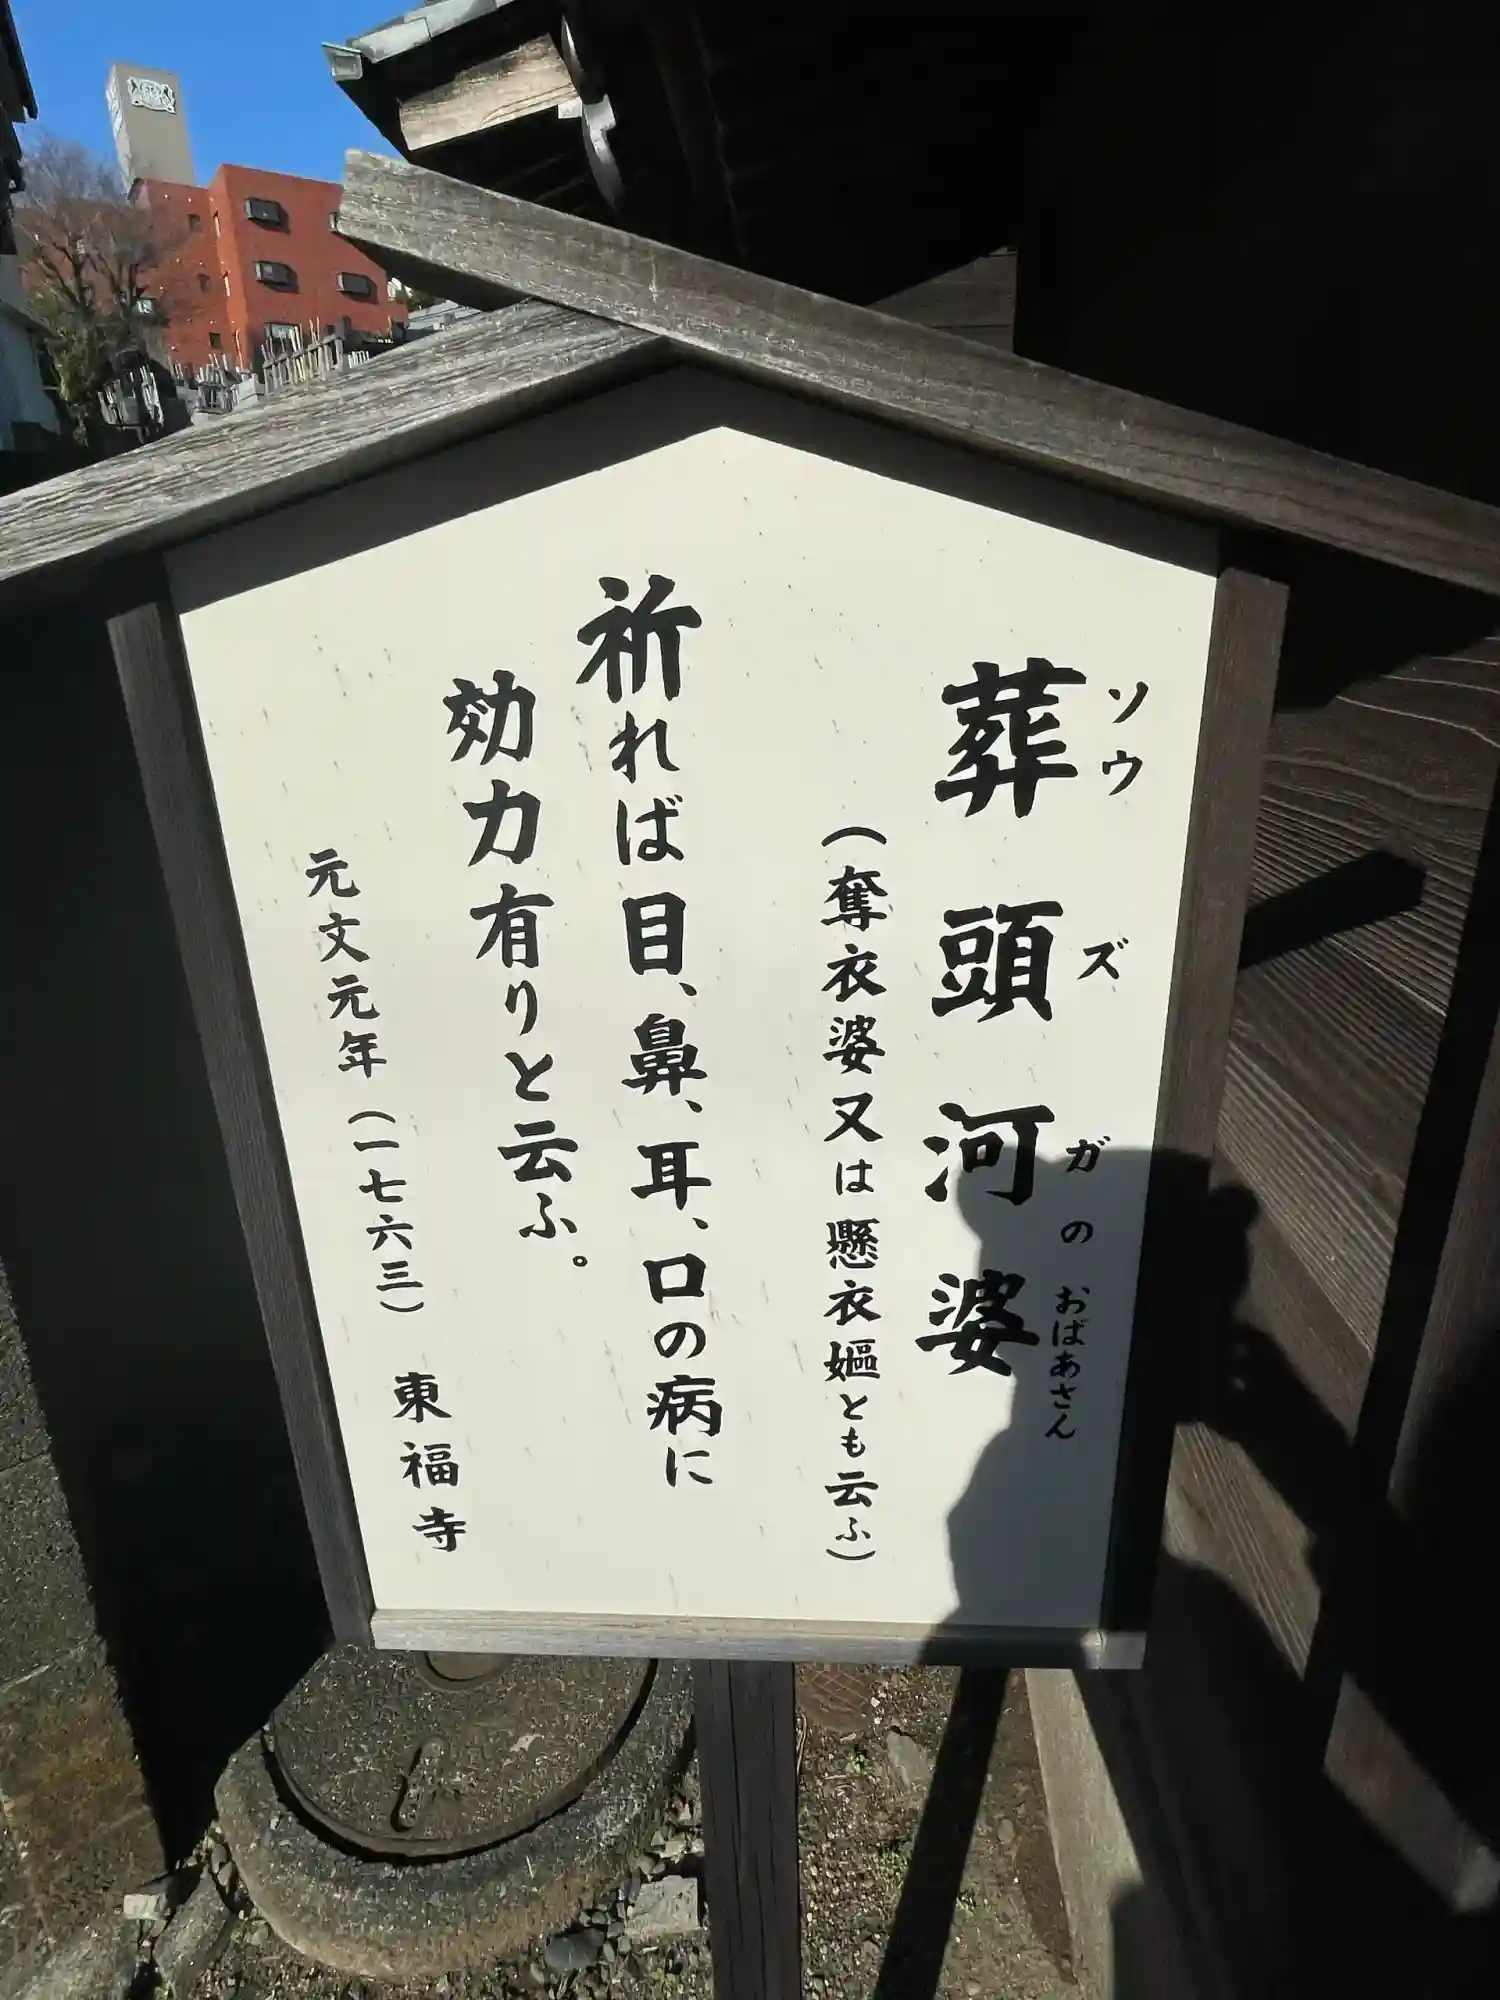 葬頭河婆
ソウズガのおばあさん
（奪衣婆又は懸衣嫗とも云ふ）
祈れば目、鼻、耳、口の病に
効力有りと云ふ。
元文元年（一七六三） 東福寺